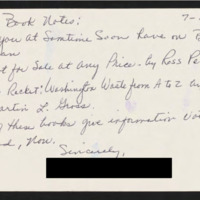 Book Notes: 7-
you at Sometime Soon have on B
an
t for Sale at Any Price - by Ross Pe
Racket: Washington Waste from A to Z
artin L. Gross.
these books gives information
Now.
Sincerely,